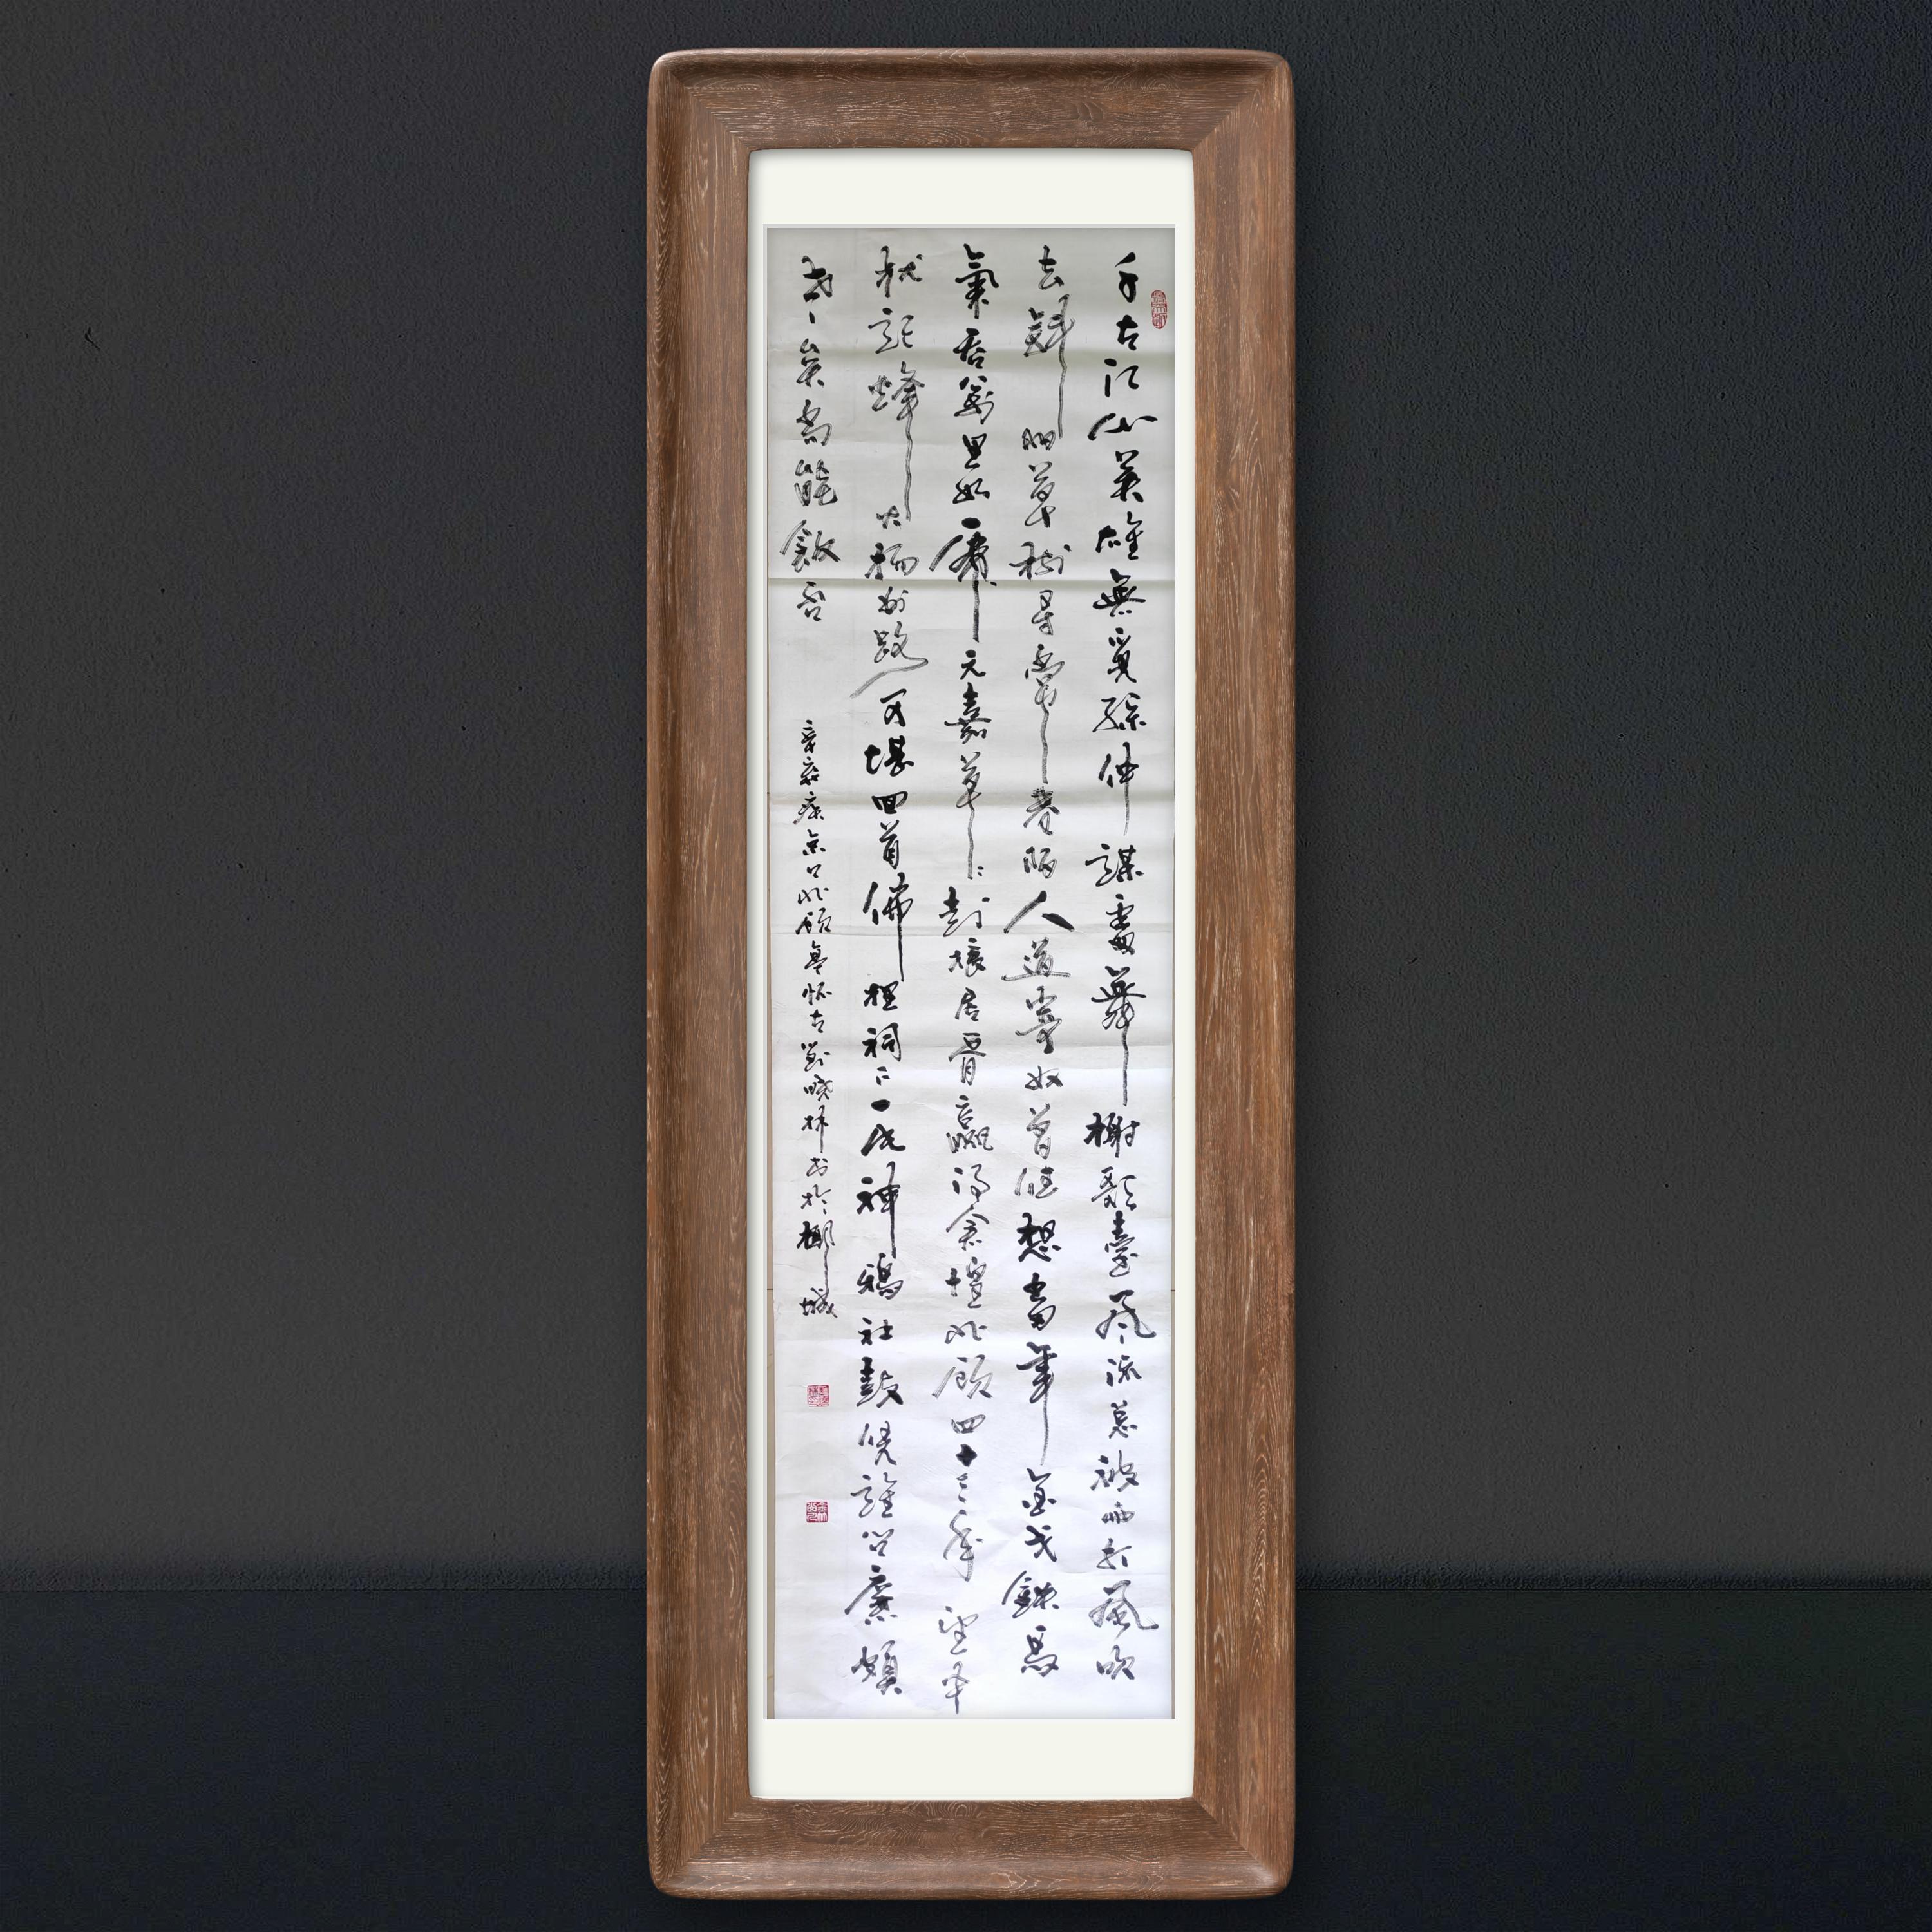 千古江山英雄無覓孫仲謀處舞榭歌臺風流總被雨打風吹
去斜陽草樹尋常巷陌人道寄奴曾住想當年金戈鐵馬
氣吞萬里如虎元嘉草草封狼居胥贏得倉惶北顧四十三年望中
猶記烽火揚州路可堪回首佛狸祠下一片神鴉社鼓憑誰問廉頗
老矣尚能飯否
辛棄疾京口北顧亭懷古劉曉林书於城